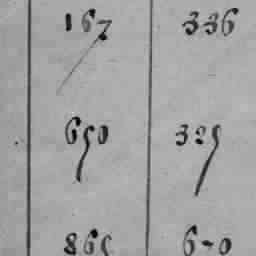 167 336
650 325
865 670